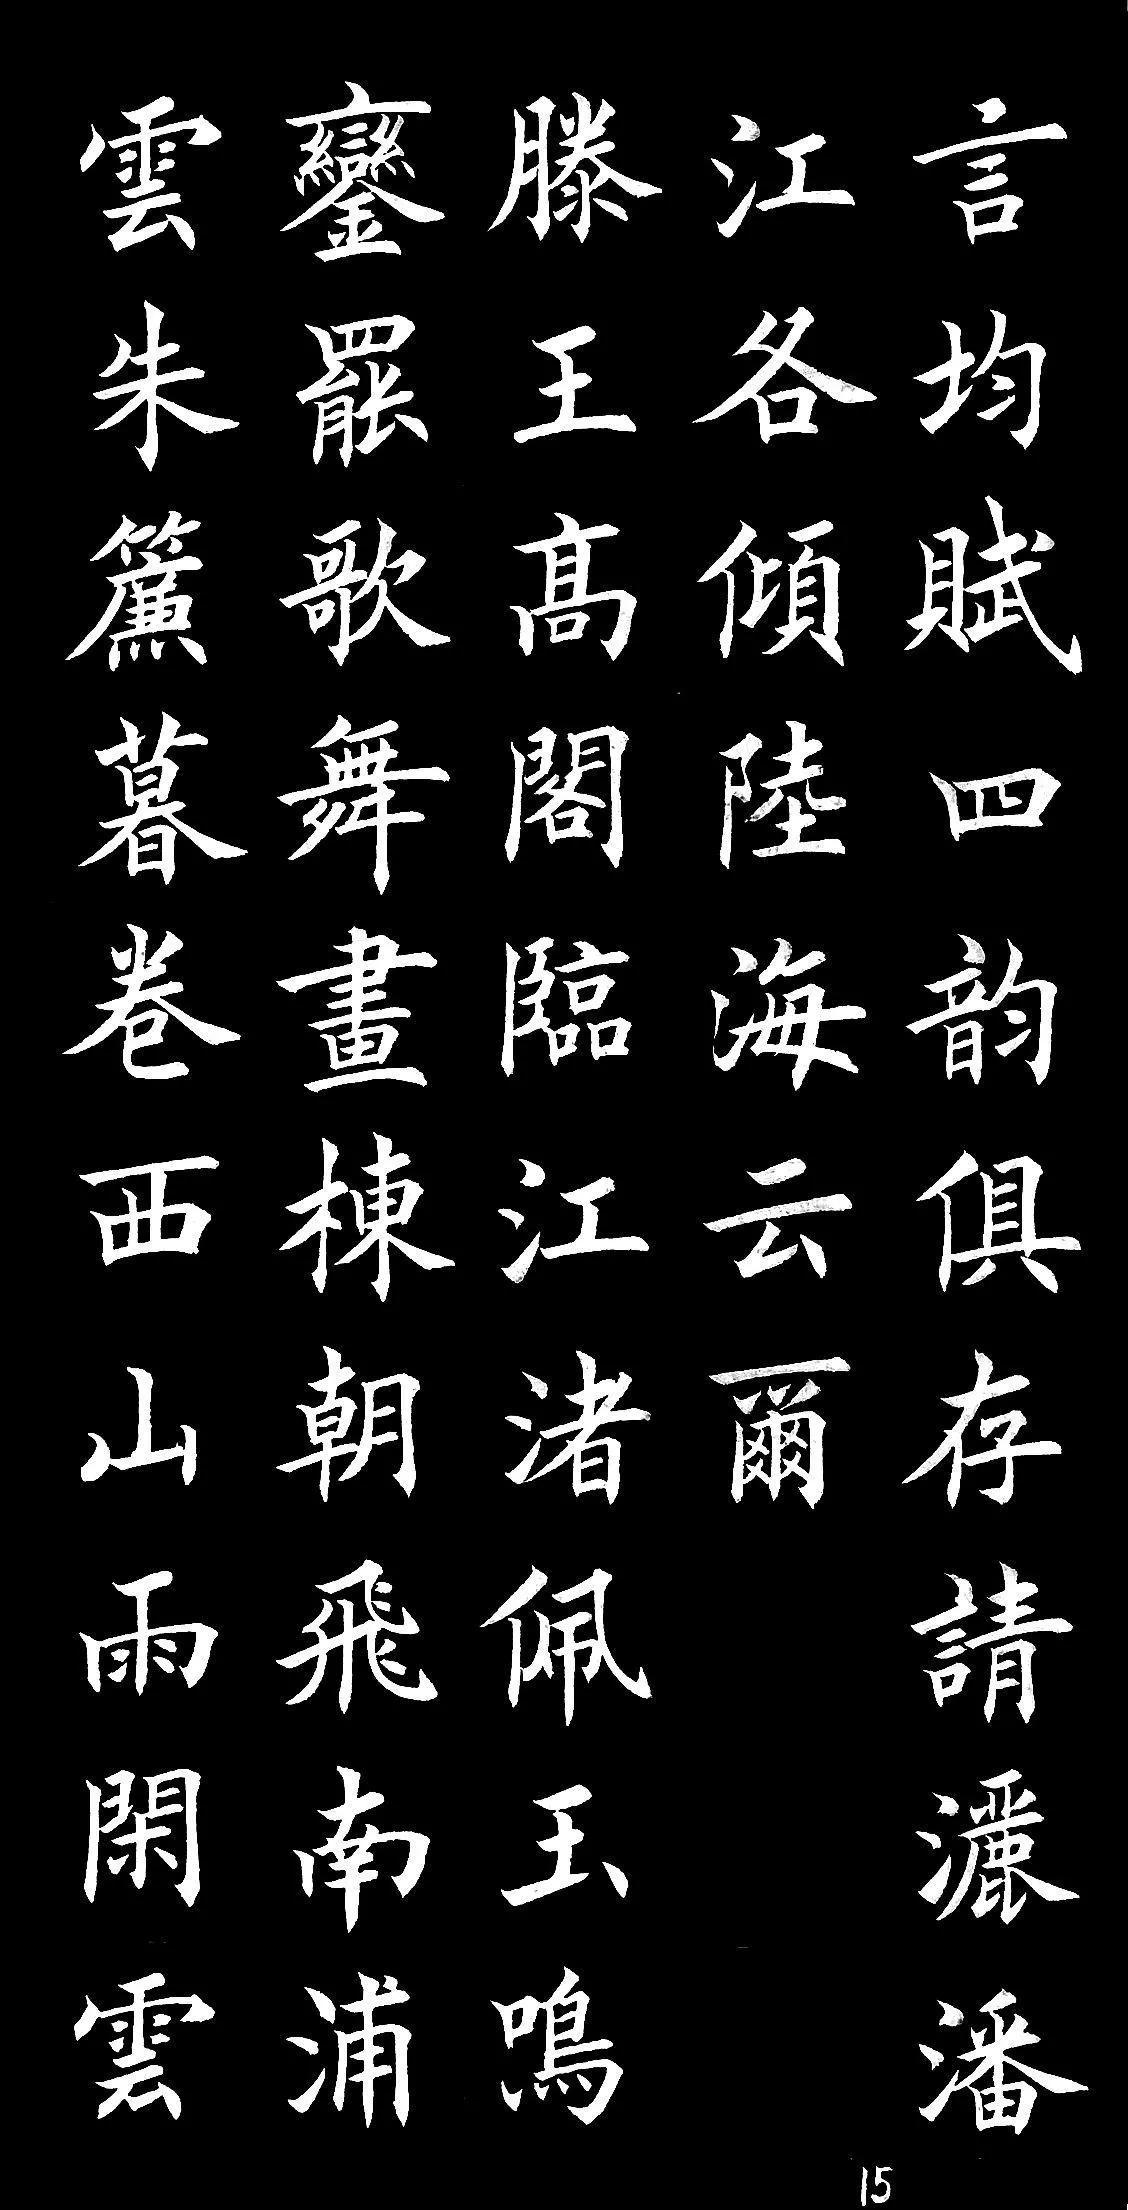 言均賦四韵俱存請灑潘
江各傾陸海云爾
滕王高閣臨江渚佩玉鳴
鑾罷歌舞畫棟朝飛南浦
雲朱簾暮卷西山雨閑雲
15